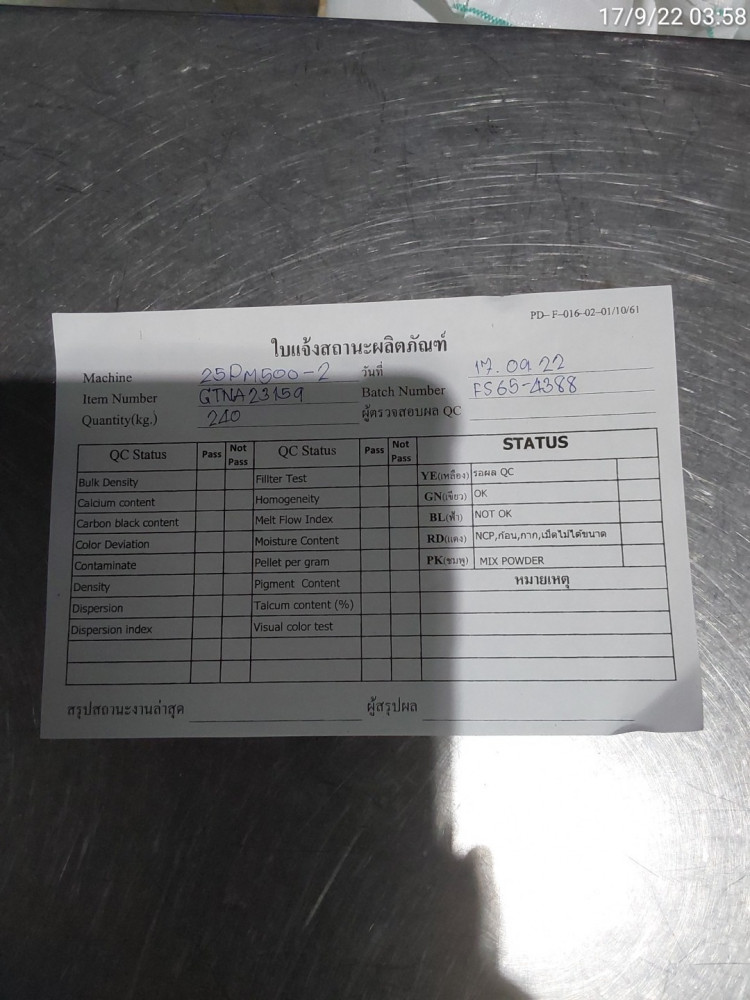 17/9/22 03:58
PD- F-016-02-01/10/61
ใบแจ้งสถานะผลิตภัณฑ์
Machine 25PM500-2 วันที่ 17.09.22
Item Number GTNA23159 Batch Number FS65-4388
Quantity(kg.) 240 ผู้ตรวจสอบผล QC
QC Status Pass Not Pass QC Status Pass Not Pass STATUS
Bulk Density Fillter Test YE(เหลือง) รอผล QC
Calcium content Homogeneity GN(เขียว) OK
Carbon black content Melt Flow Index BL(ฟ้า) NOT OK
Color Deviation Moisture Content RD(แดง) NCP,ก้อน,กาก,เม็ดไม่ได้ขนาด
Contaminate Pellet per gram PK(ชมพู) MIX POWDER
Density Pigment Content หมายเหตุ
Dispersion Talcum content (%)
Dispersion index Visual color test
สรุปสถานะงานล่าสุด ผู้สรุปผล